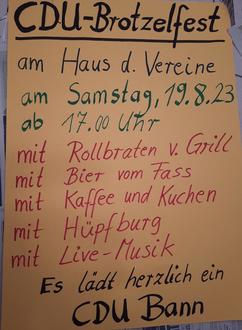 CDU-Brotzelfest
am Haus d. Vereine
am Samstag, 19.8.23
ab 17.00 Uhr
mit Rollbraten v. Grill
mit Bier vom Fass
mit Kaffee und Kuchen
mit Hüpfburg
mit Live-Musik
Es lädt herzlich ein
CDU Bann